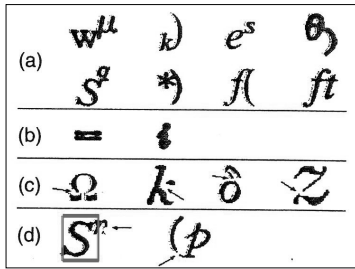 (a) w^μ k) e^s θ)
S^q *) f( ft
(b) = i
(c) Ω k ô Z
(d) S^n (p